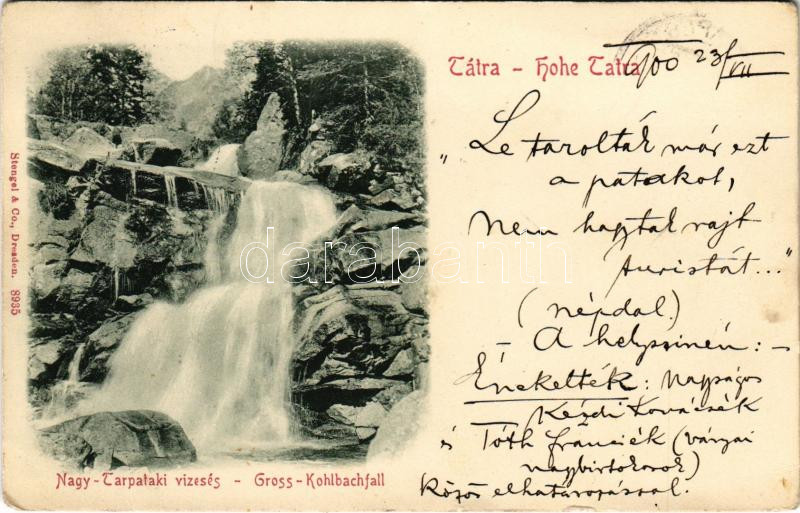 Tátra - Hohe Tatra
900 23/VII
"Le tarolták már ezt
a patakot,
Nem hagytak rajt
turistát..."
(népdal.)
- A helyszinén: -
Énekelték: Nagyságos
Kézdi Kovácsék
és Tóth Franciék (várgai
nagybirtokosok)
közös elhatározással.
Stengel & Co., Dresden. 8935
darabanth
Nagy-Tarpataki vizesés - Gross-Kohlbachfall